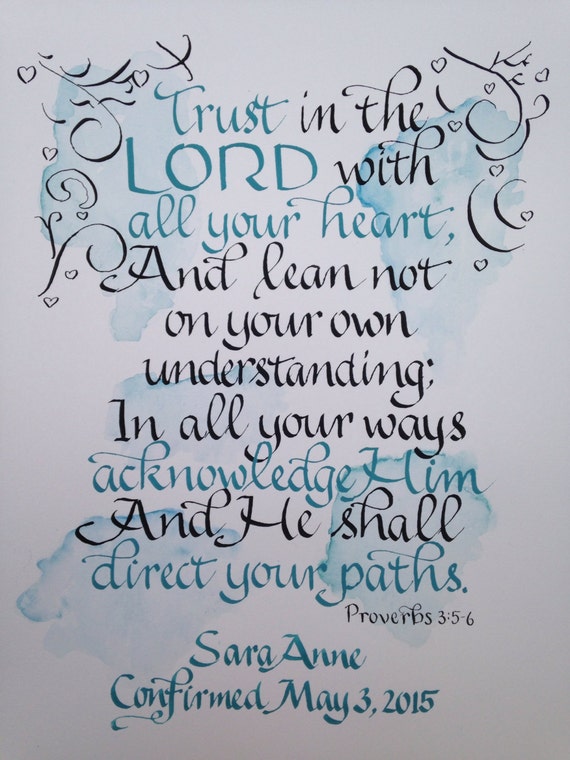 Trust in the
LORD with
all your heart,
And lean not
on your own
understanding;
In all your ways
acknowledge Him
And He shall
direct your paths.
Proverbs 3:5-6
Sara Anne
Confirmed May 3, 2015